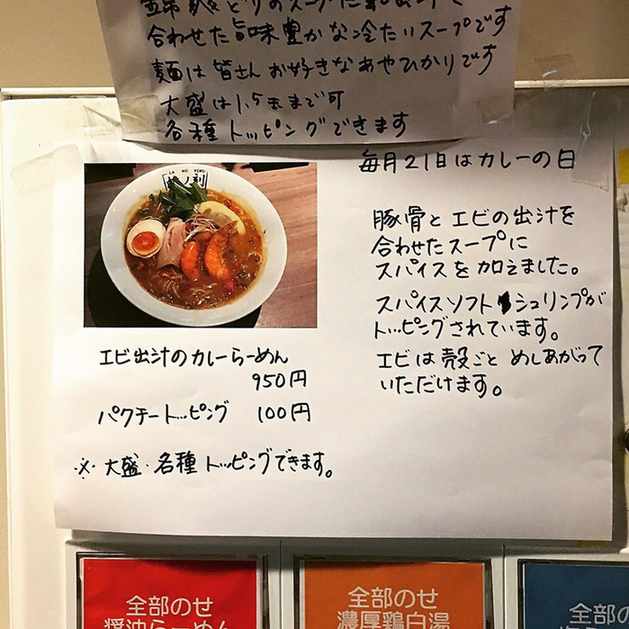 合わせた旨味豊かな冷たいスープです
麺は皆さんお好きなあやひかりです
大盛は1.5玉まで可
各種トッピングできます
毎月21日はカレーの日
豚骨とエビの出汁を
合わせたスープに
スパイスを加えました。
スパイスソフトシュリンプが
トッピングされています。
エビは殻ごとめしあがって
いただけます。
エビ出汁のカレーらーめん
950円
パクチートッピング 100円
※大盛・各種トッピングできます。
全部のせ
醤油らーめん
全部のせ
濃厚鶏白湯
全部のせ